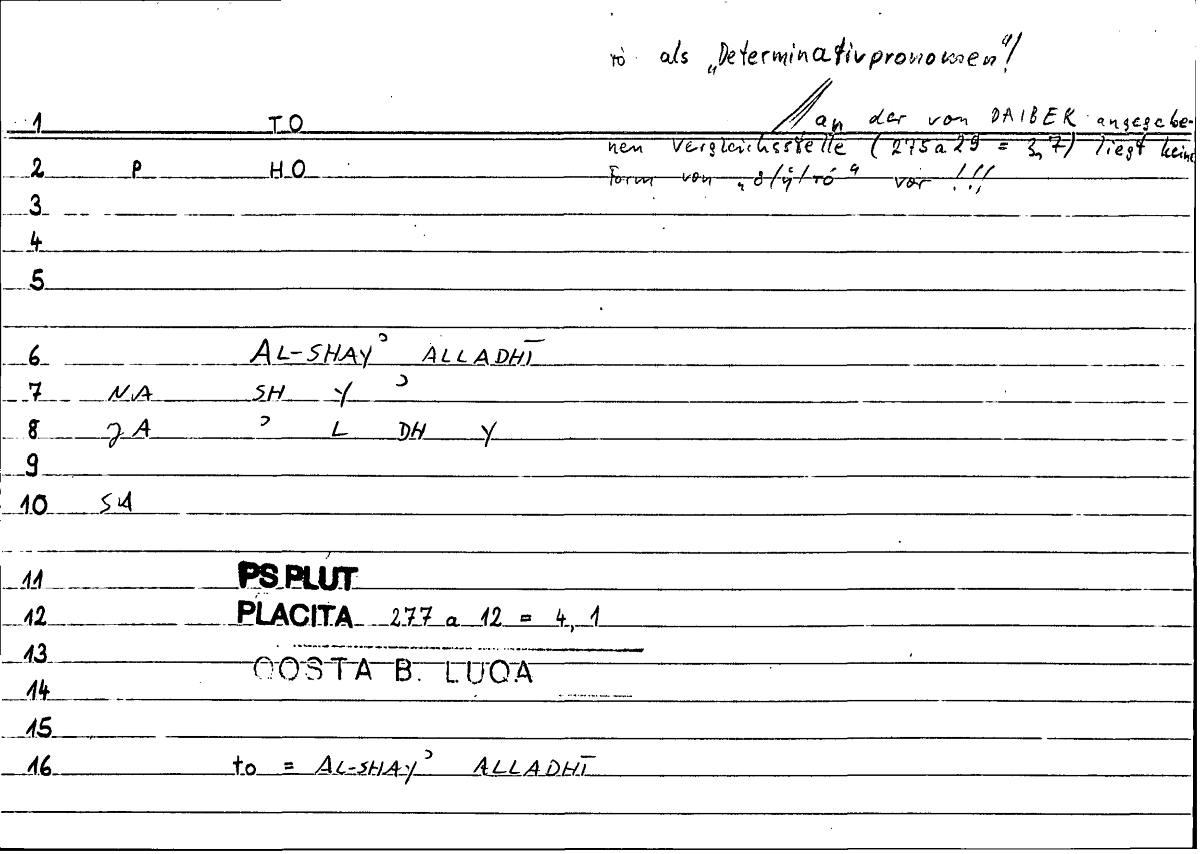 τὸ als „Determinativpronomen“!
1 TO
an der von DAIBER angegebe-
nen Vergleichsstelle (275a29 = 3,7) liegt keine
Form von „ὁ/ἡ/τό“ vor!!!
2 P HO
3
4
5
6 AL-SHAYʾ ALLADHĪ
7 NA SH Y ʾ
8 JA ʾ L DH Y
9
10 SA
11 PS.PLUT
12 PLACITA 277 a 12 = 4, 1
13
QOSTA B. LUQA
14
15
16 to = AL-SHAYʾ ALLADHĪ